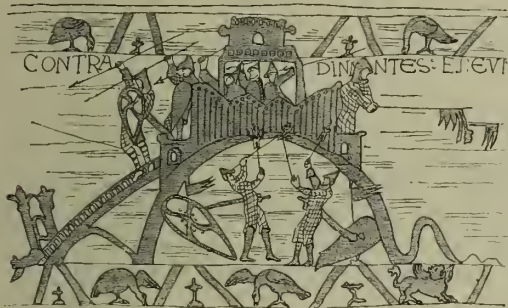 CONTRA DINANTES: ET: